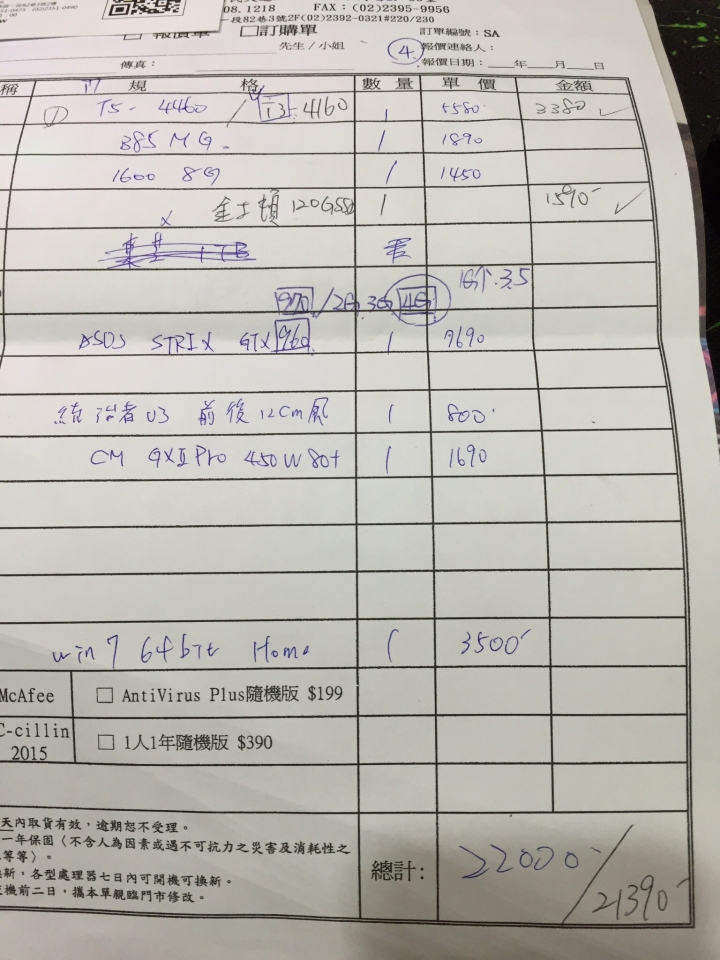 08.1218 FAX：(02)2395-9956
一段82巷3號2F(02)2392-0321#220/230
報價單 □訂購單 訂單編號：SA
先生/小姐 ④ 報價連絡人：
傳真： 報價日期：＿＿年＿＿月＿＿日
稱 規 格 數 量 單 價 金額
① I5- 4460 / i3-4160 1 5580 3380 ✓
B85 M G. 1 1890
1600 8G 1 1450
金士頓 120GSSD 1 1590 ✓
x
1TB
970 /2G.3G.4G 1G个.3.5
ASUS STRIX GTX960 1 7690
統治者U3 前後12cm風 1 800
CM GXII Pro 450W 80+ 1 1690
win7 64bit Home 1 3500
McAfee □ AntiVirus Plus隨機版 $199
C-cillin 2015 □ 1人1年隨機版 $390
天內取貨有效，逾期恕不受理。
一年保固〈不含人為因素或遇不可抗力之災害及消耗性之
等等〉。
換新，各型處理器七日內可開機可換新。
機前二日，攜本單親臨門市修改。
總計: 22000 / 21390